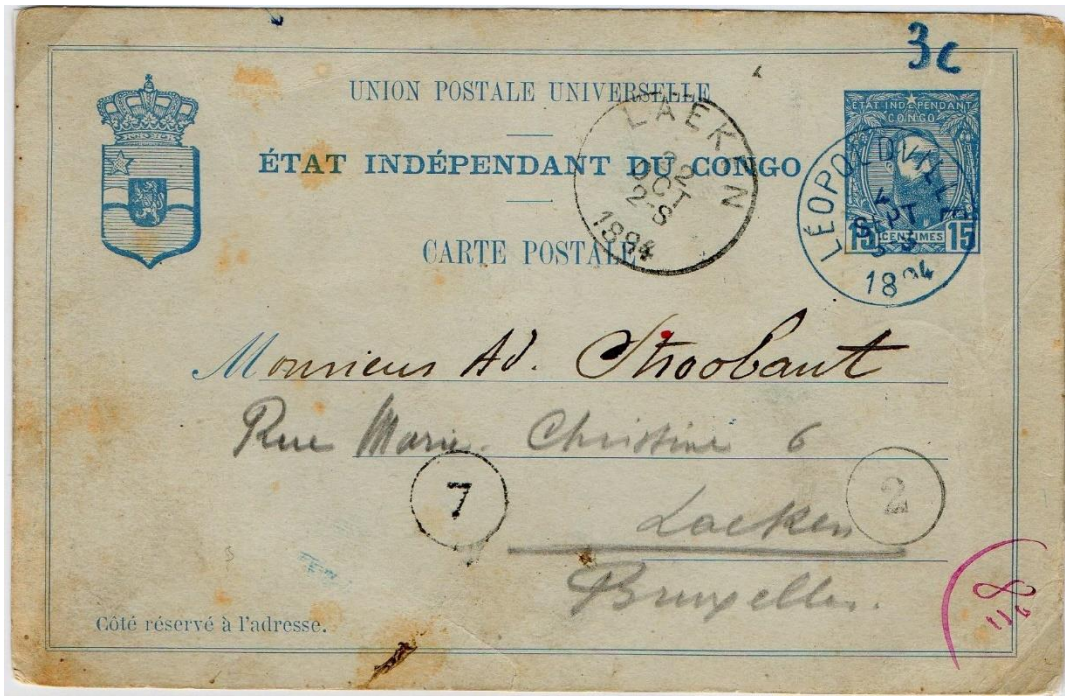 3c
UNION POSTALE UNIVERSELLE
ÉTAT INDÉPENDANT DU CONGO
CARTE POSTALE
ÉTAT INDÉPENDANT
CONGO
15 CENTIMES 15
LÉOPOLDVILLE
4
SEPT
1894
LAEKEN
OCT
2-S
1894
Monsieur Ad. Stroobant
Rue Marie-Christine 6
Laeken
Bruxelles.
7
2
Côté réservé à l'adresse.